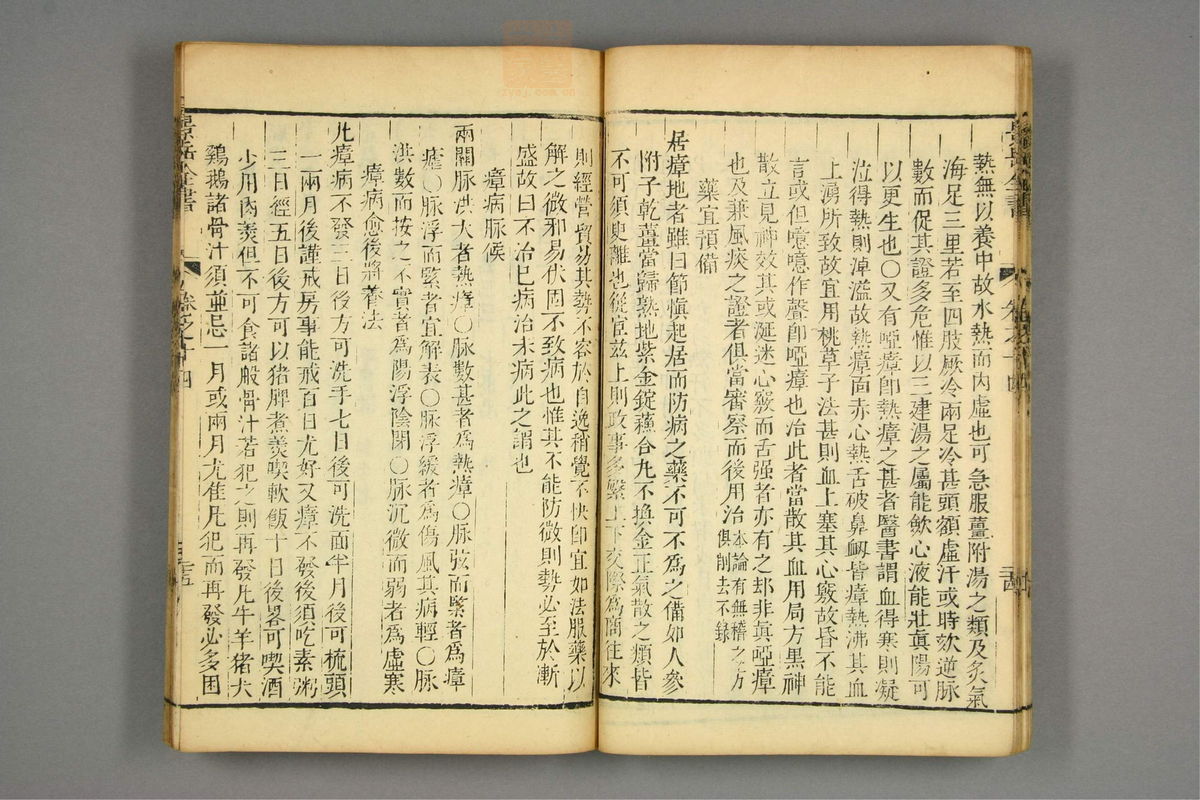 熱無以養中故水熱而内虛也可急服薑附湯之類及炙氣
海足三里若至四肢厥冷兩足冷甚頭額虛汗或時欬逆脉
數而促其證多危惟以三建湯之屬能歛心液能壯真陽可
以更生也○又有啞瘴即熱瘴之甚者醫書謂血得寒則凝
泣得熱則淖溢故熱瘴面赤心熱舌破鼻衂皆瘴熱沸其血
上湧所致故宜用桃草子法甚則血上塞其心竅故昏不能
言或但噫噫作聲即啞瘴也治此者當散其血用局方黑神
散立見神效其或涎迷心竅而舌强者亦有之却非真啞瘴
也及兼風痰之證者俱當審察而後用治本論有無稽之方俱削去不錄
藥宜預備
居瘴地者雖曰節愼起居而防病之藥不可不爲之備如人參
附子乾薑當歸熟地紫金錠蘓合丸不換金正氣散之類皆
不可須臾離也從宦兹土則政事多繁上下交際爲商往來
則經營貿易其勢不容於自逸稍覺不快即宜如法服藥以
解之微邪易伏固不致病也惟其不能防微則勢必至於漸
盛故曰不治已病治未病此之謂也
瘴病脉候
兩關脉洪大者熱瘴○脉數甚者爲熱瘴○脉弦而緊者爲瘴
瘧○脉浮而緊者宜解表○脉浮緩者爲傷風其病輕○脉
洪數而按之不實者爲陽浮陰閉○脉沉微而弱者爲虛寒
瘴病愈後將養法
凡瘴病不發三日後方可洗手七日後可洗面半月後可梳頭
一兩月後謹戒房事能戒百日尤好又瘴不發後須吃素粥
三日經五日後方可以猪脾煮羹喫軟飯十日後畧可喫酒
少用肉羹但不可食諸般骨汁若犯之則再發凡牛羊猪犬
鷄鵝諸骨汁須並忌一月或兩月尤佳凡犯而再發必多困
景岳全書
卷之十四
景岳全書
卷之十四